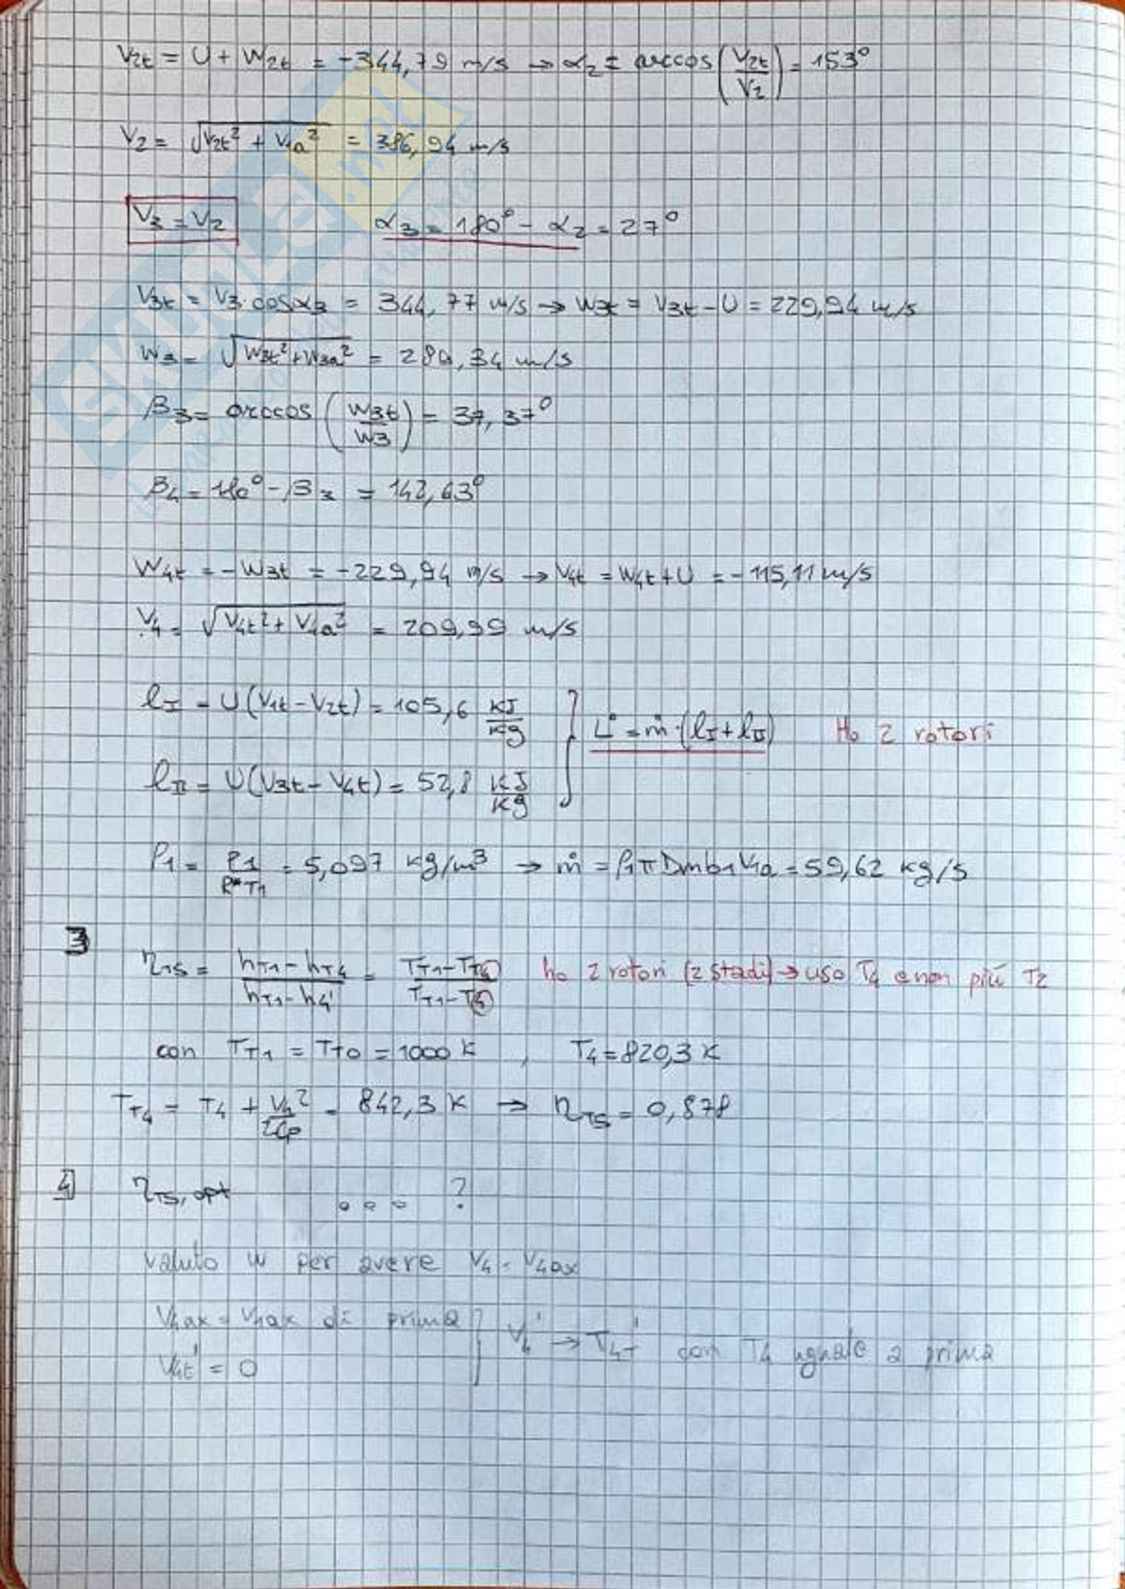 V2t = U + W2t = -344,79 m/s → α2 = arccos(V2t/V2) = 153°
V2 = √(V2t² + V1a²) = 386,94 m/s
V3 = V2 α3 = 180° - α2 = 27°
V3t = V3 cosα3 = 344,77 m/s → W3t = V3t - U = 229,94 m/s
W3 = √(W3t² + W3a²) = 289,34 m/s
β3 = arccos(W3t/W3) = 37,37°
β4 = 180° - β3 = 142,63°
W4t = -W3t = -229,94 m/s → V4t = W4t + U = -115,11 m/s
V4 = √(V4t² + V4a²) = 209,99 m/s
lI = U(V1t - V2t) = 105,6 kJ/kg
L° = ṁ·(lI + lII) Ho 2 rotori
lII = U(V3t - V4t) = 52,8 kJ/kg
ρ1 = P1/R*T1 = 5,097 kg/m³ → ṁ = ρ1πDmb1V1a = 59,62 kg/s
3
ηTS = (hT1 - hT4)/(hT1 - h4') = (TT1 - TT4)/(TT1 - T4') ho 2 rotori (2 stadi) → uso T4 e non più T2
con TT1 = TT0 = 1000 K , T4 = 820,3 K
TT4 = T4 + V4²/2Cp = 842,3 K → ηTS = 0,878
4
ηTS, opt ° ° ° ?
valuto w per avere V4 = V4ax
V4ax = V4ax di prima
V4' → T4T' con T4 uguale a prima
V4t' = 0